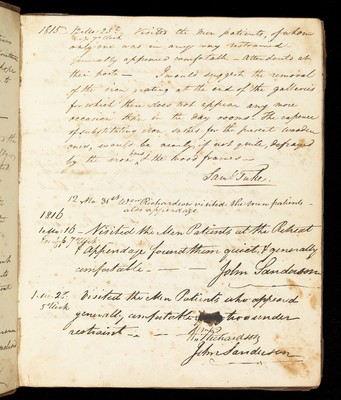 1815 12 Mo. 25th Visited the Men patients, of whom
7 o'Clock only one was in any way restrained
generally appeared comfortable – Attendants at
their posts – I would suggest the removal
of the iron grating at the end of the galleries
for which there does not appear any more
occasion than in the day rooms. The expence
of substituting iron sashes for the present wooden
ones, would be nearly if not quite, defrayed
by the iron bars & the wood frames –
Saml. Tuke.
12 Mo 31st Wm Richardson visited the men patients –
also appendage
1816
1 Mo 16 – Visited the Men Patients at the Retreat
7 o'Clock & Appendage found them quiet, & generally
comfortable – –
John Sanderson
Visited the Men Patients who appeared
5 o'Clock generally comfortable two under
restraint –
Wm Richardson
John Sanderson